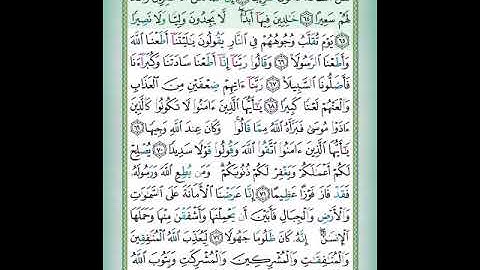 لَهُمْ سَعِيرًا ٦٤ خَٰلِدِينَ فِيهَآ أَبَدًا ۖ لَّا يَجِدُونَ وَلِيًّا وَلَا نَصِيرًا
٦٥ يَوْمَ تُقَلَّبُ وُجُوهُهُمْ فِى ٱلنَّارِ يَقُولُونَ يَٰلَيْتَنَآ أَطَعْنَا ٱللَّهَ
وَأَطَعْنَا ٱلرَّسُولَا۠ ٦٦ وَقَالُوا۟ رَبَّنَآ إِنَّآ أَطَعْنَا سَادَتَنَا وَكُبَرَآءَنَا
فَأَضَلُّونَا ٱلسَّبِيلَا۠ ٦٧ رَبَّنَآ ءَاتِهِمْ ضِعْفَيْنِ مِنَ ٱلْعَذَابِ
وَٱلْعَنْهُمْ لَعْنًا كَبِيرًا ٦٨ يَٰٓأَيُّهَا ٱلَّذِينَ ءَامَنُوا۟ لَا تَكُونُوا۟ كَٱلَّذِينَ
ءَاذَوْا۟ مُوسَىٰ فَبَرَّأَهُ ٱللَّهُ مِمَّا قَالُوا۟ ۚ وَكَانَ عِندَ ٱللَّهِ وَجِيهًا ٦٩
يَٰٓأَيُّهَا ٱلَّذِينَ ءَامَنُوا۟ ٱتَّقُوا۟ ٱللَّهَ وَقُولُوا۟ قَوْلًا سَدِيدًا ٧٠ يُصْلِحْ
لَكُمْ أَعْمَٰلَكُمْ وَيَغْفِرْ لَكُمْ ذُنُوبَكُمْ ۗ وَمَن يُطِعِ ٱللَّهَ وَرَسُولَهُۥ
فَقَدْ فَازَ فَوْزًا عَظِيمًا ٧١ إِنَّا عَرَضْنَا ٱلْأَمَانَةَ عَلَى ٱلسَّمَٰوَٰتِ
وَٱلْأَرْضِ وَٱلْجِبَالِ فَأَبَيْنَ أَن يَحْمِلْنَهَا وَأَشْفَقْنَ مِنْهَا وَحَمَلَهَا
ٱلْإِنسَٰنُ ۖ إِنَّهُۥ كَانَ ظَلُومًا جَهُولًا ٧٢ لِّيُعَذِّبَ ٱللَّهُ ٱلْمُنَٰفِقِينَ
وَٱلْمُنَٰفِقَٰتِ وَٱلْمُشْرِكِينَ وَٱلْمُشْرِكَٰتِ وَيَتُوبَ ٱللَّهُ